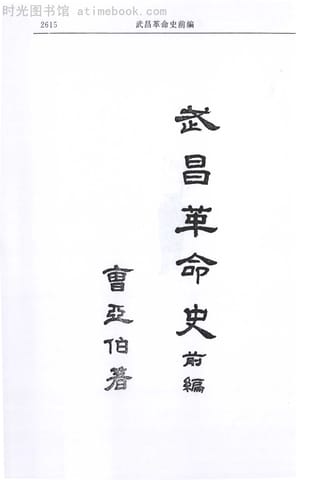 时光图书馆 atimebook.com
2615 武昌革命史前編
武昌革命史前編
曹亞伯著